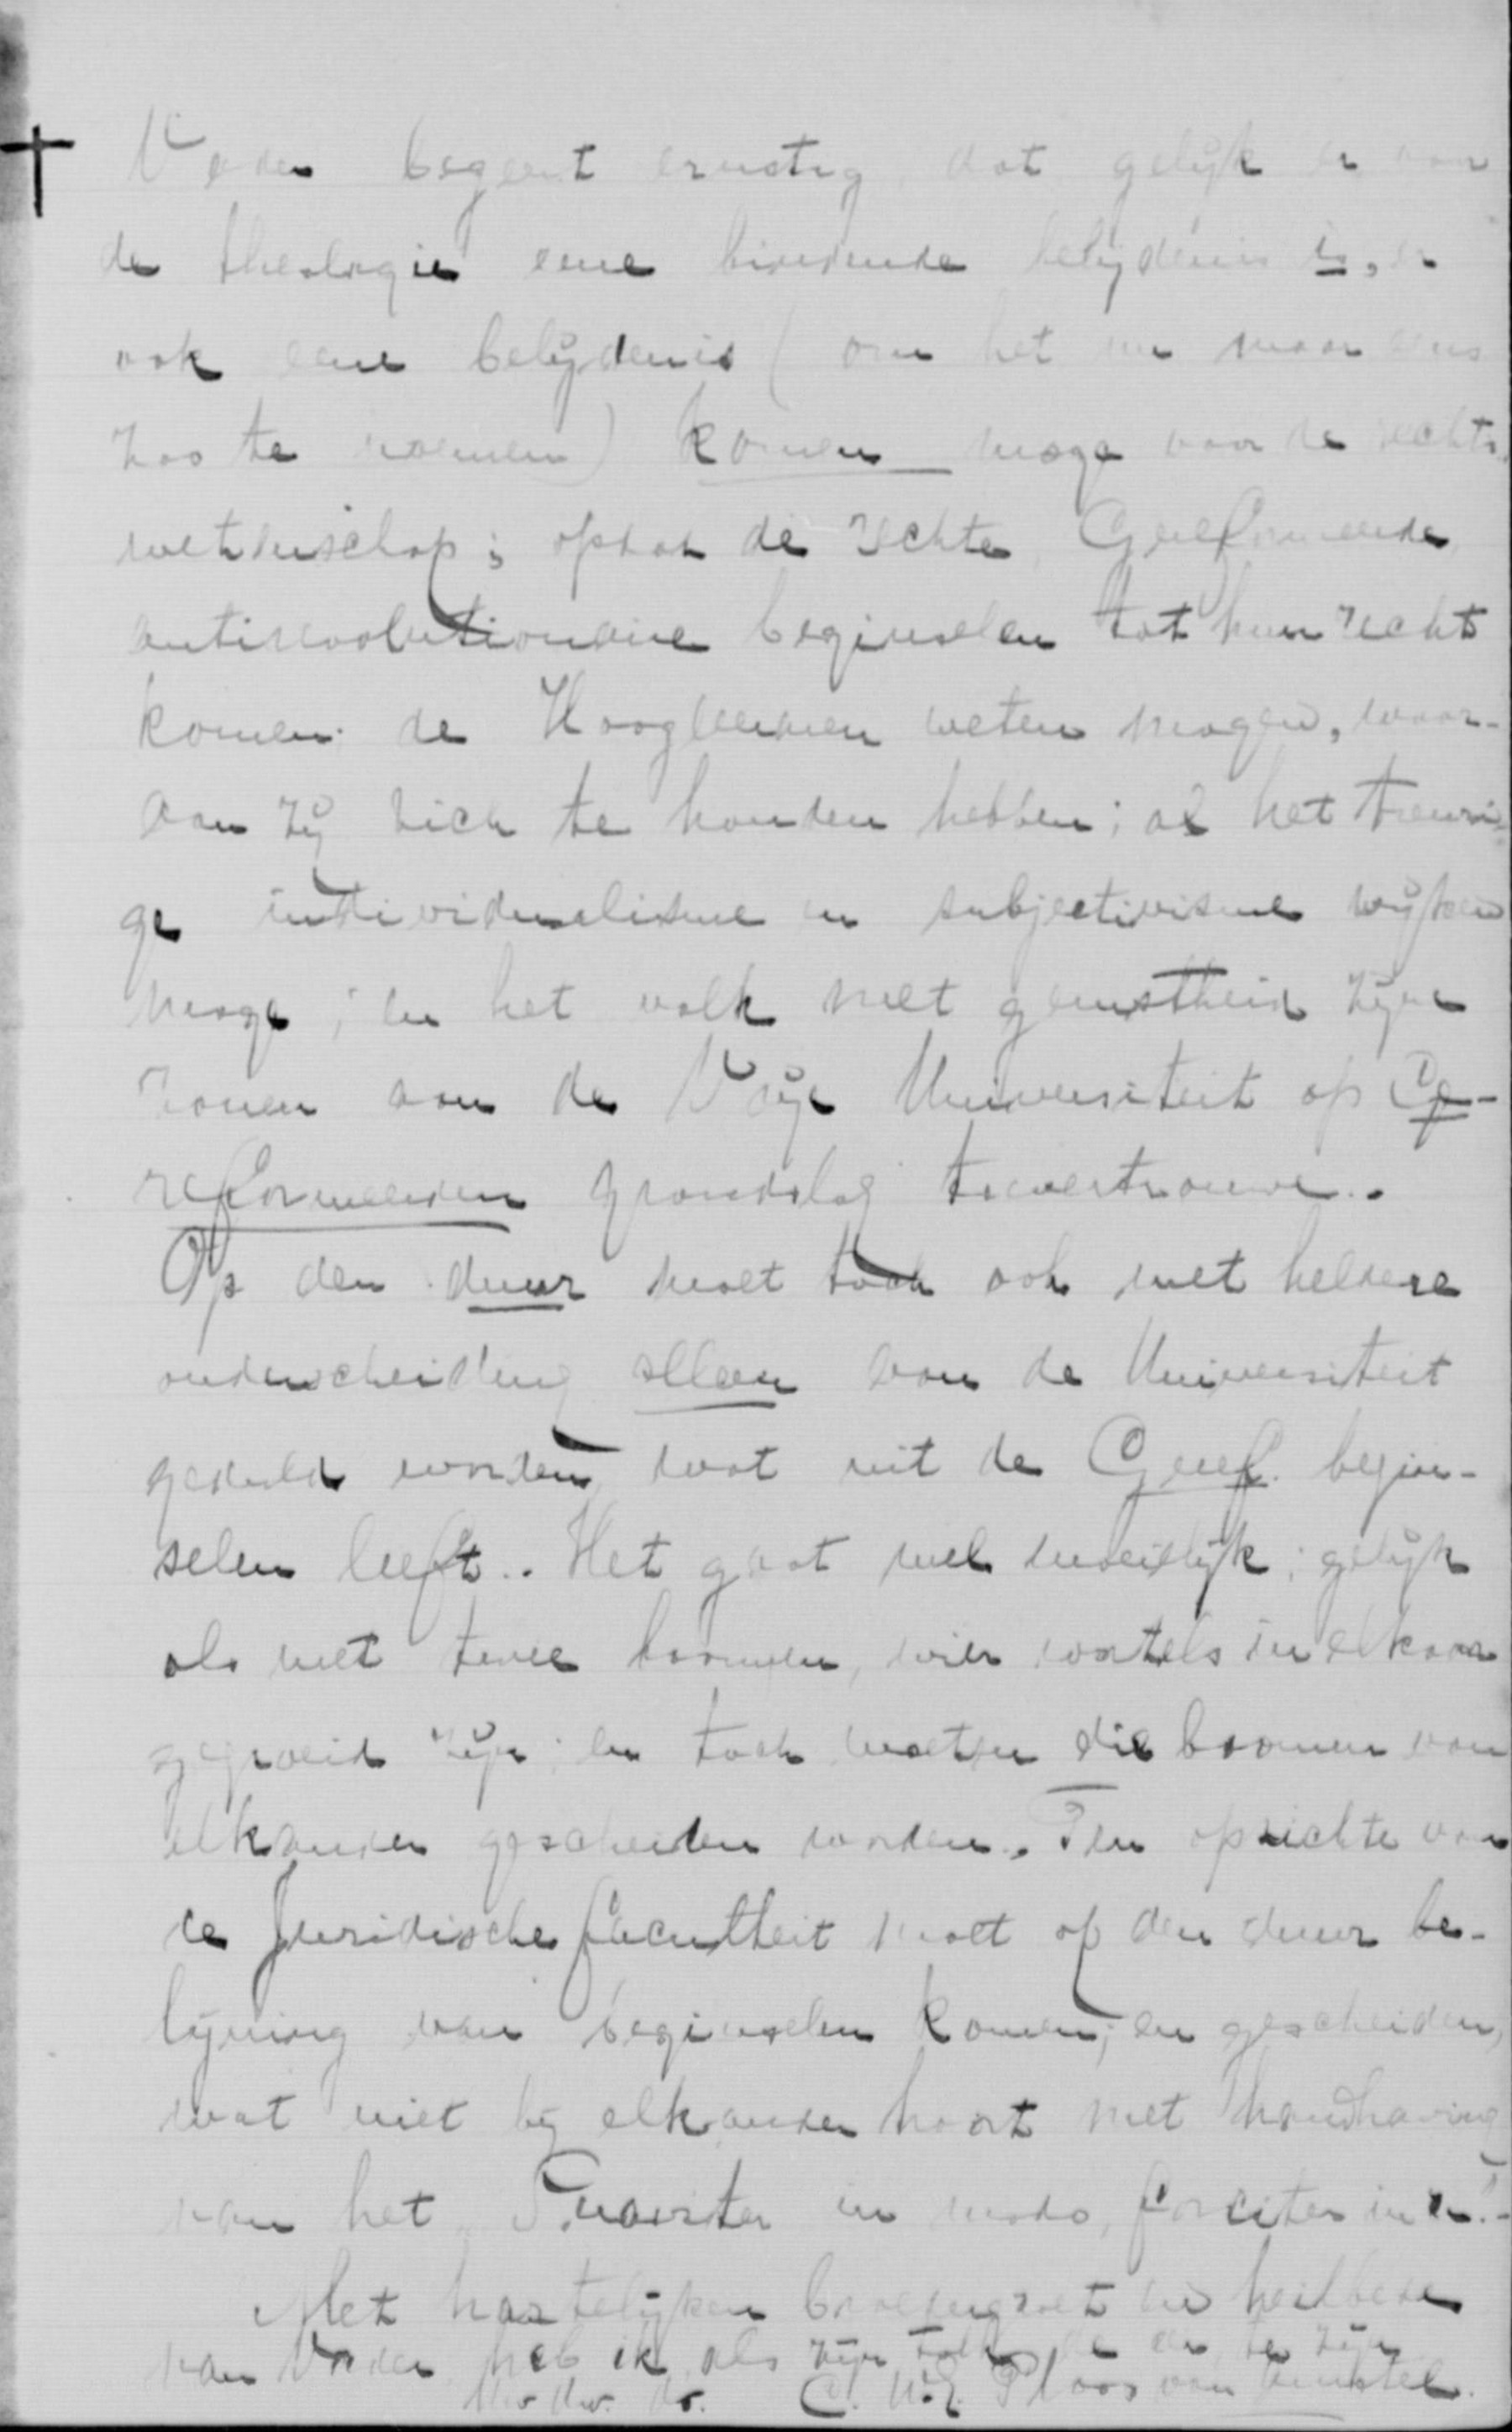 Vader begeert ernstig, dat gelijk er voor
de theologie eene bindende belijdenis is, er
ook eene belijdenis (om het nu maar eens
zoo te noemen) komen moge voor de rechts-
wetenschap; opdat de echte Gereformeerde
antirevolutionaire beginselen tot hun recht
komen; de Hoogleeraren weten mogen, waar-
aan zij zich te houden hebben; al het treuri-
ge individualisme en subjectivisme wijken
moge; en het volk met gerustheid zijne
zonen aan de Vrije Universiteit op Ge-
reformeerden grondslag toevertrouwe..
Op den duur moet toch ook met heldere
onderscheiding alleen aan de Universiteit
geduld worden, wat uit de Geref. begin-
selen leeft.. Het gaat wel moeilijk; gelijk
als met twee boomen, wier wortels in elkaar
gegroeid zijn; en toch moeten die boomen van
elkander gescheiden worden. Ten opzichte van
de Juridische faculteit moet op den duur be-
lijning van beginselen komen; en gescheiden,
wat niet bij elkander hoort met handhaving
van het "Suaviter in modo, fortiter in re."-
Met hartelijken broedergroet en heilbede
van Vader heb ik als zijn tolk de eer te zijn
Uw dw. dr. C. W. E. Ploos van Amstel.